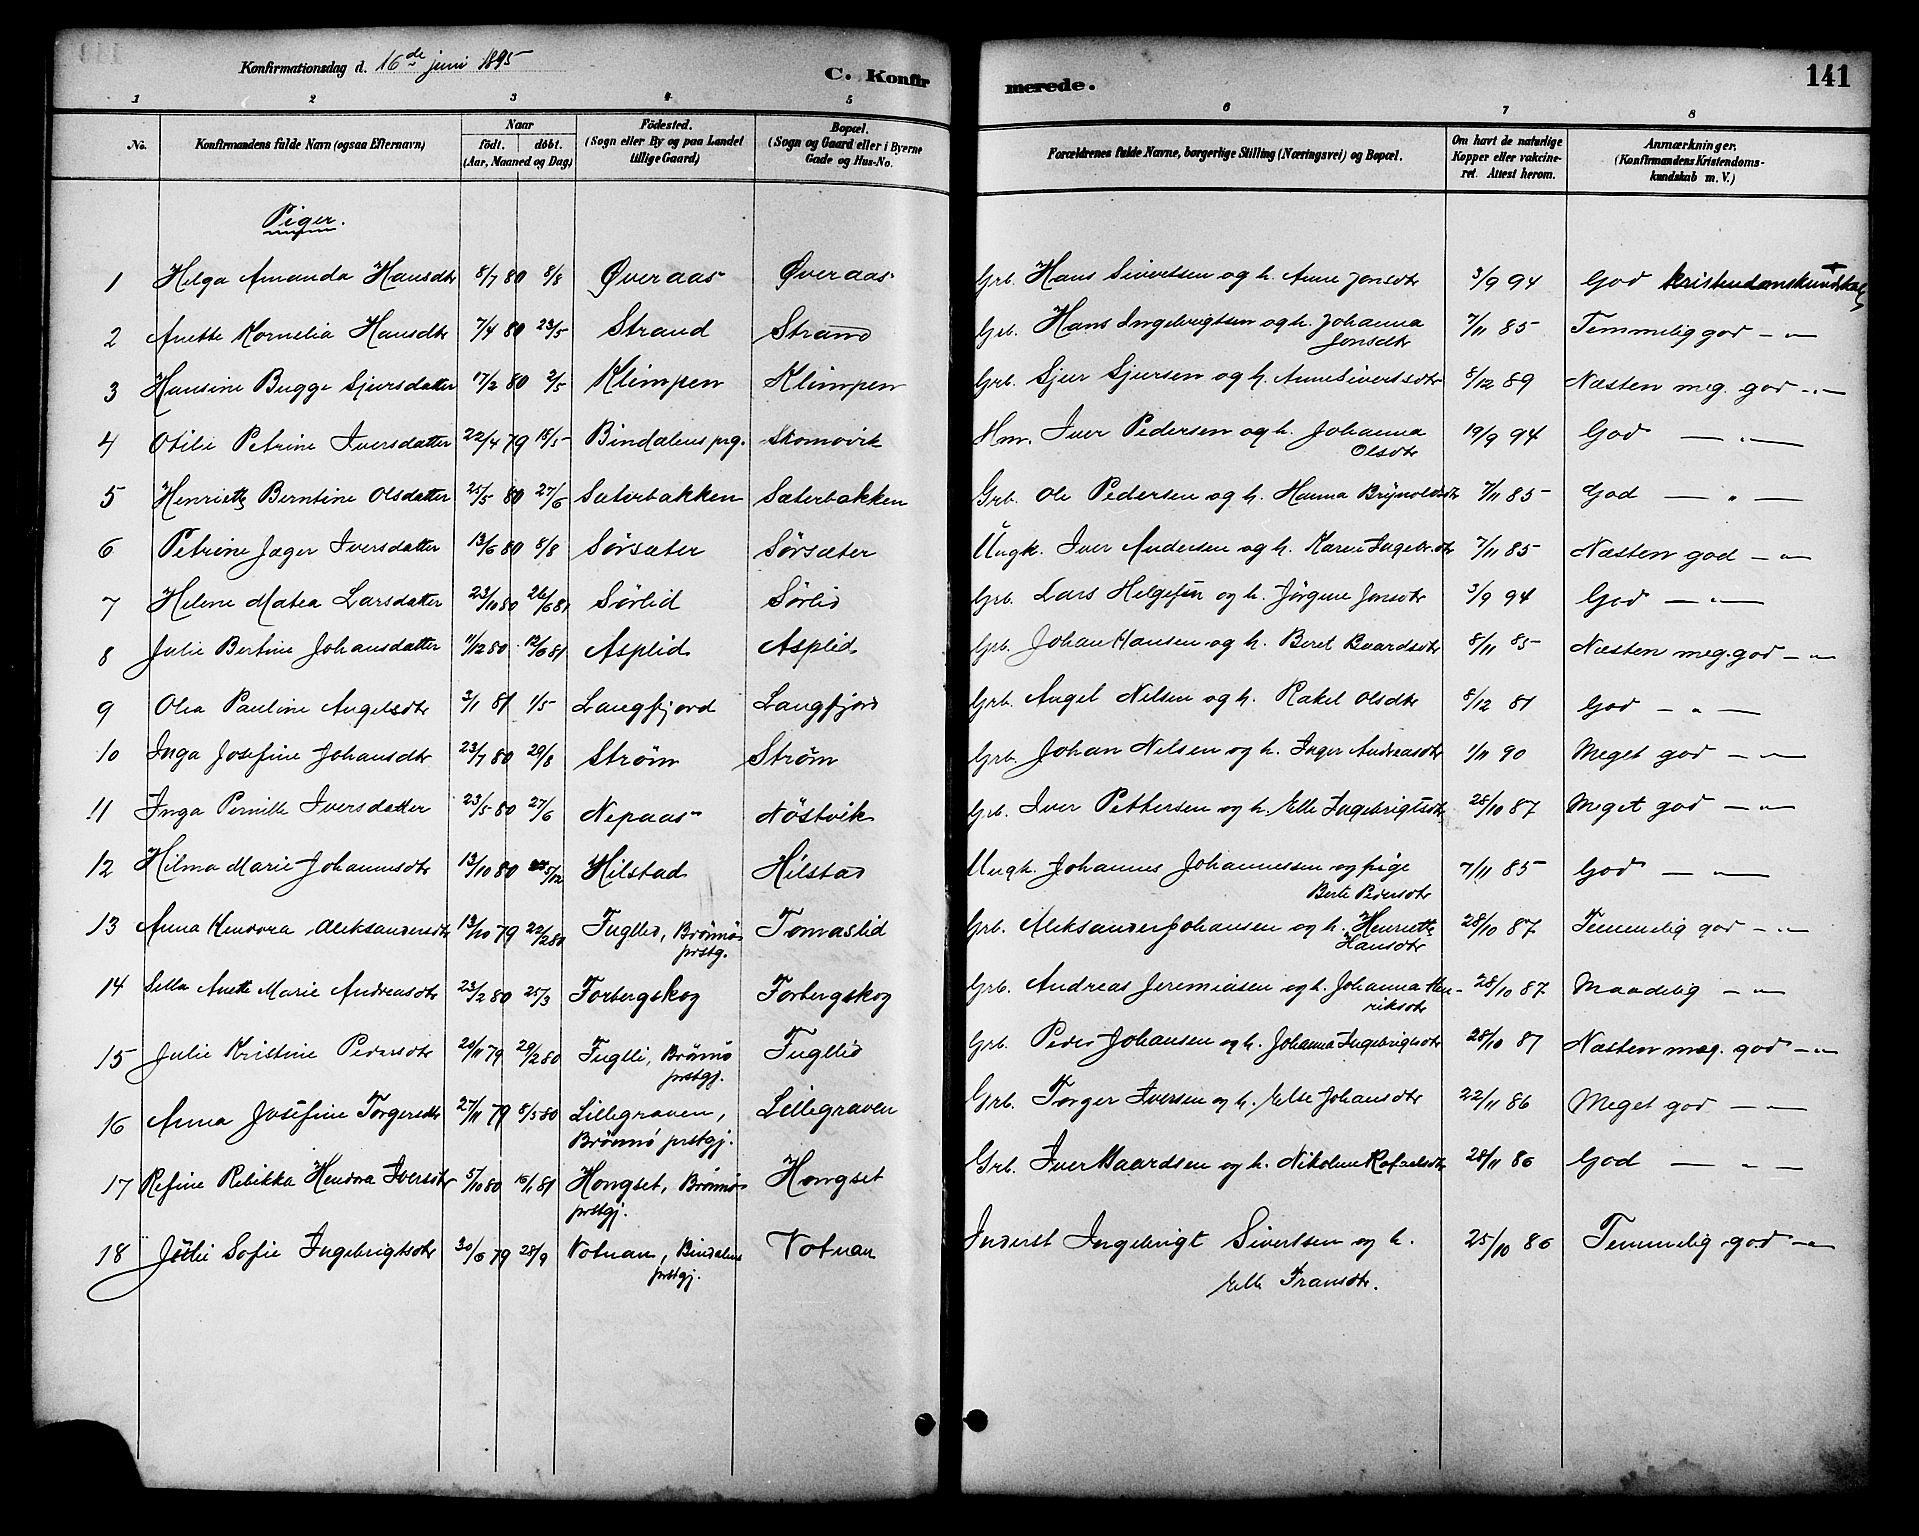 Konfirmationsdag d. 16de juni 1895
C. Konfir
merede.
141
1 2 3 4 5 6 7 8
No.
Konfirmandens fulde Navn (ogsaa Efternavn)
Naar
födt. döbt.
(Aar, Maaned og Dag)
Födested.
(Sogn eller By og paa Landet
tillige Gaard)
Bopæl.
(Sogn og Gaard eller i Byerne
Gade og Hus-No.
Forældrenes fulde Navne, borgerlige Stilling (Næringsvei) og Bopæl.
Om havt de naturlige
Kopper eller vakcine-
ret. Attest herom.
Anmærkninger.
(Konfirmandens Kristendoms-
kundskab m. V.)
Piger.
1 Helga Amanda Hansdtr 8/7 80 8/8 Øveraas Øveraas Grb. Hans Sivertsen og h. Anne Jonsdtr 3/9 94 God kristendomskundskab
2 Anette Kornelia Hansdtr 7/4 80 23/5 Strand Strand Grb. Hans Ingebrigtsen og h. Johanna
Jonsdtr 7/11 85 Temmelig god — " —
3 Hansine Bugge Sjursdatter 17/2 80 2/5 Klimpen Klimpen Grb. Sjur Sjursen og h. Anne Sivertsdtr 8/12 89 Næsten meg. god — " —
4 Otilie Petrine Iversdatter 22/4 79 18/5 Bindalens prg. Skomovik Hm. Iver Pedersen og h. Johanna
Olsdtr 19/9 94 God — " —
5 Henriette Berntine Olsdatter 25/5 80 27/6 Sæterbakken Sæterbakken Grb. Ole Pedersen og h. Hanna Brynoldsdtr 7/11 85 God — " —
6 Petrine Jæger Iversdatter 13/6 80 8/8 Sørsæter Sørsæter Ungk. Iver Andersen og h. Karen Ingebr.dtr 7/11 85 Næsten god — " —
7 Helene Matea Larsdatter 23/10 80 26/6 81 Sørlid Sørlid Grb. Lars Helgesen og h. Jørgine Jonsdtr 3/9 94 God — " —
8 Julie Bertine Johansdatter 11/12 80 12/6 81 Asplid Asplid Grb. Johan Hansen og h. Beret Baardsdtr 8/11 85 Næsten meg. god — " —
9 Olea Pauline Angelsdtr 2/1 81 1/5 Langfjord Langfjord Grb. Angel Nilsen og h. Rakel Olsdtr 8/12 81 God — " —
10 Inga Josefine Johansdtr 23/7 80 29/8 Strøm Strøm Grb. Johan Nilsen og h. Inger Andreasdtr 1/11 90 Meget god — " —
11 Inga Pernille Iversdatter 23/5 80 27/6 Nepaas Nöstvik Grb. Iver Pettersen og h. Elle Ingebrigtsdtr 28/10 87 Meget god — " —
12 Hilma Marie Johannesdtr 13/10 80 5/12 Hilstad Hilstad Ungk. Johannes Johannessen og pige
Berte Pedersdtr 7/11 85 God — " —
13 Anna Hendora Aleksandersdtr 13/10 79 22/2 80 Fuglli, Brönnö
prstg. Tomaslid Grb. Aleksander Johansen og h. Henriette
Hansdtr 28/10 87 Temmelig god — " —
14 Sella Anette Marie Andreasdtr 23/2 80 25/3 Forbergskog Forbergskog Grb. Andreas Jeremiasen og h. Johanna Hen-
riksdtr 28/10 87 Maadelig — " —
15 Julie Kristine Pedersdtr 20/11 79 29/2 80 Fuglli, Brönnö
prstgj. Fugllid Grb. Peder Johansen og h. Johanna Ingebrigtsdtr 28/10 87 Næsten meg. god — " —
16 Anna Josefine Torgersdtr 27/11 79 8/5 80 Lillegraven,
Brönnö prstgj. Lillegraven Grb. Torger Iversen og h. Else Johansdtr 22/11 86 Meget god — " —
17 Refine Rebikka Hendora Iversdtr 5/10 80 16/1 81 Hongset, Brönnö
prstgj. Hongset Grb. Iver Baardsen og h. Nikoline Rafaelsdtr 28/11 86 God — " —
18 Julie Sofie Ingebrigtsdtr 30/6 79 28/9 Votnan, Bindalens
prstgj. Votnan Inderst Ingebrigt Sivertsen og h.
Elle Fransdtr. 25/10 86 Temmelig god — " —